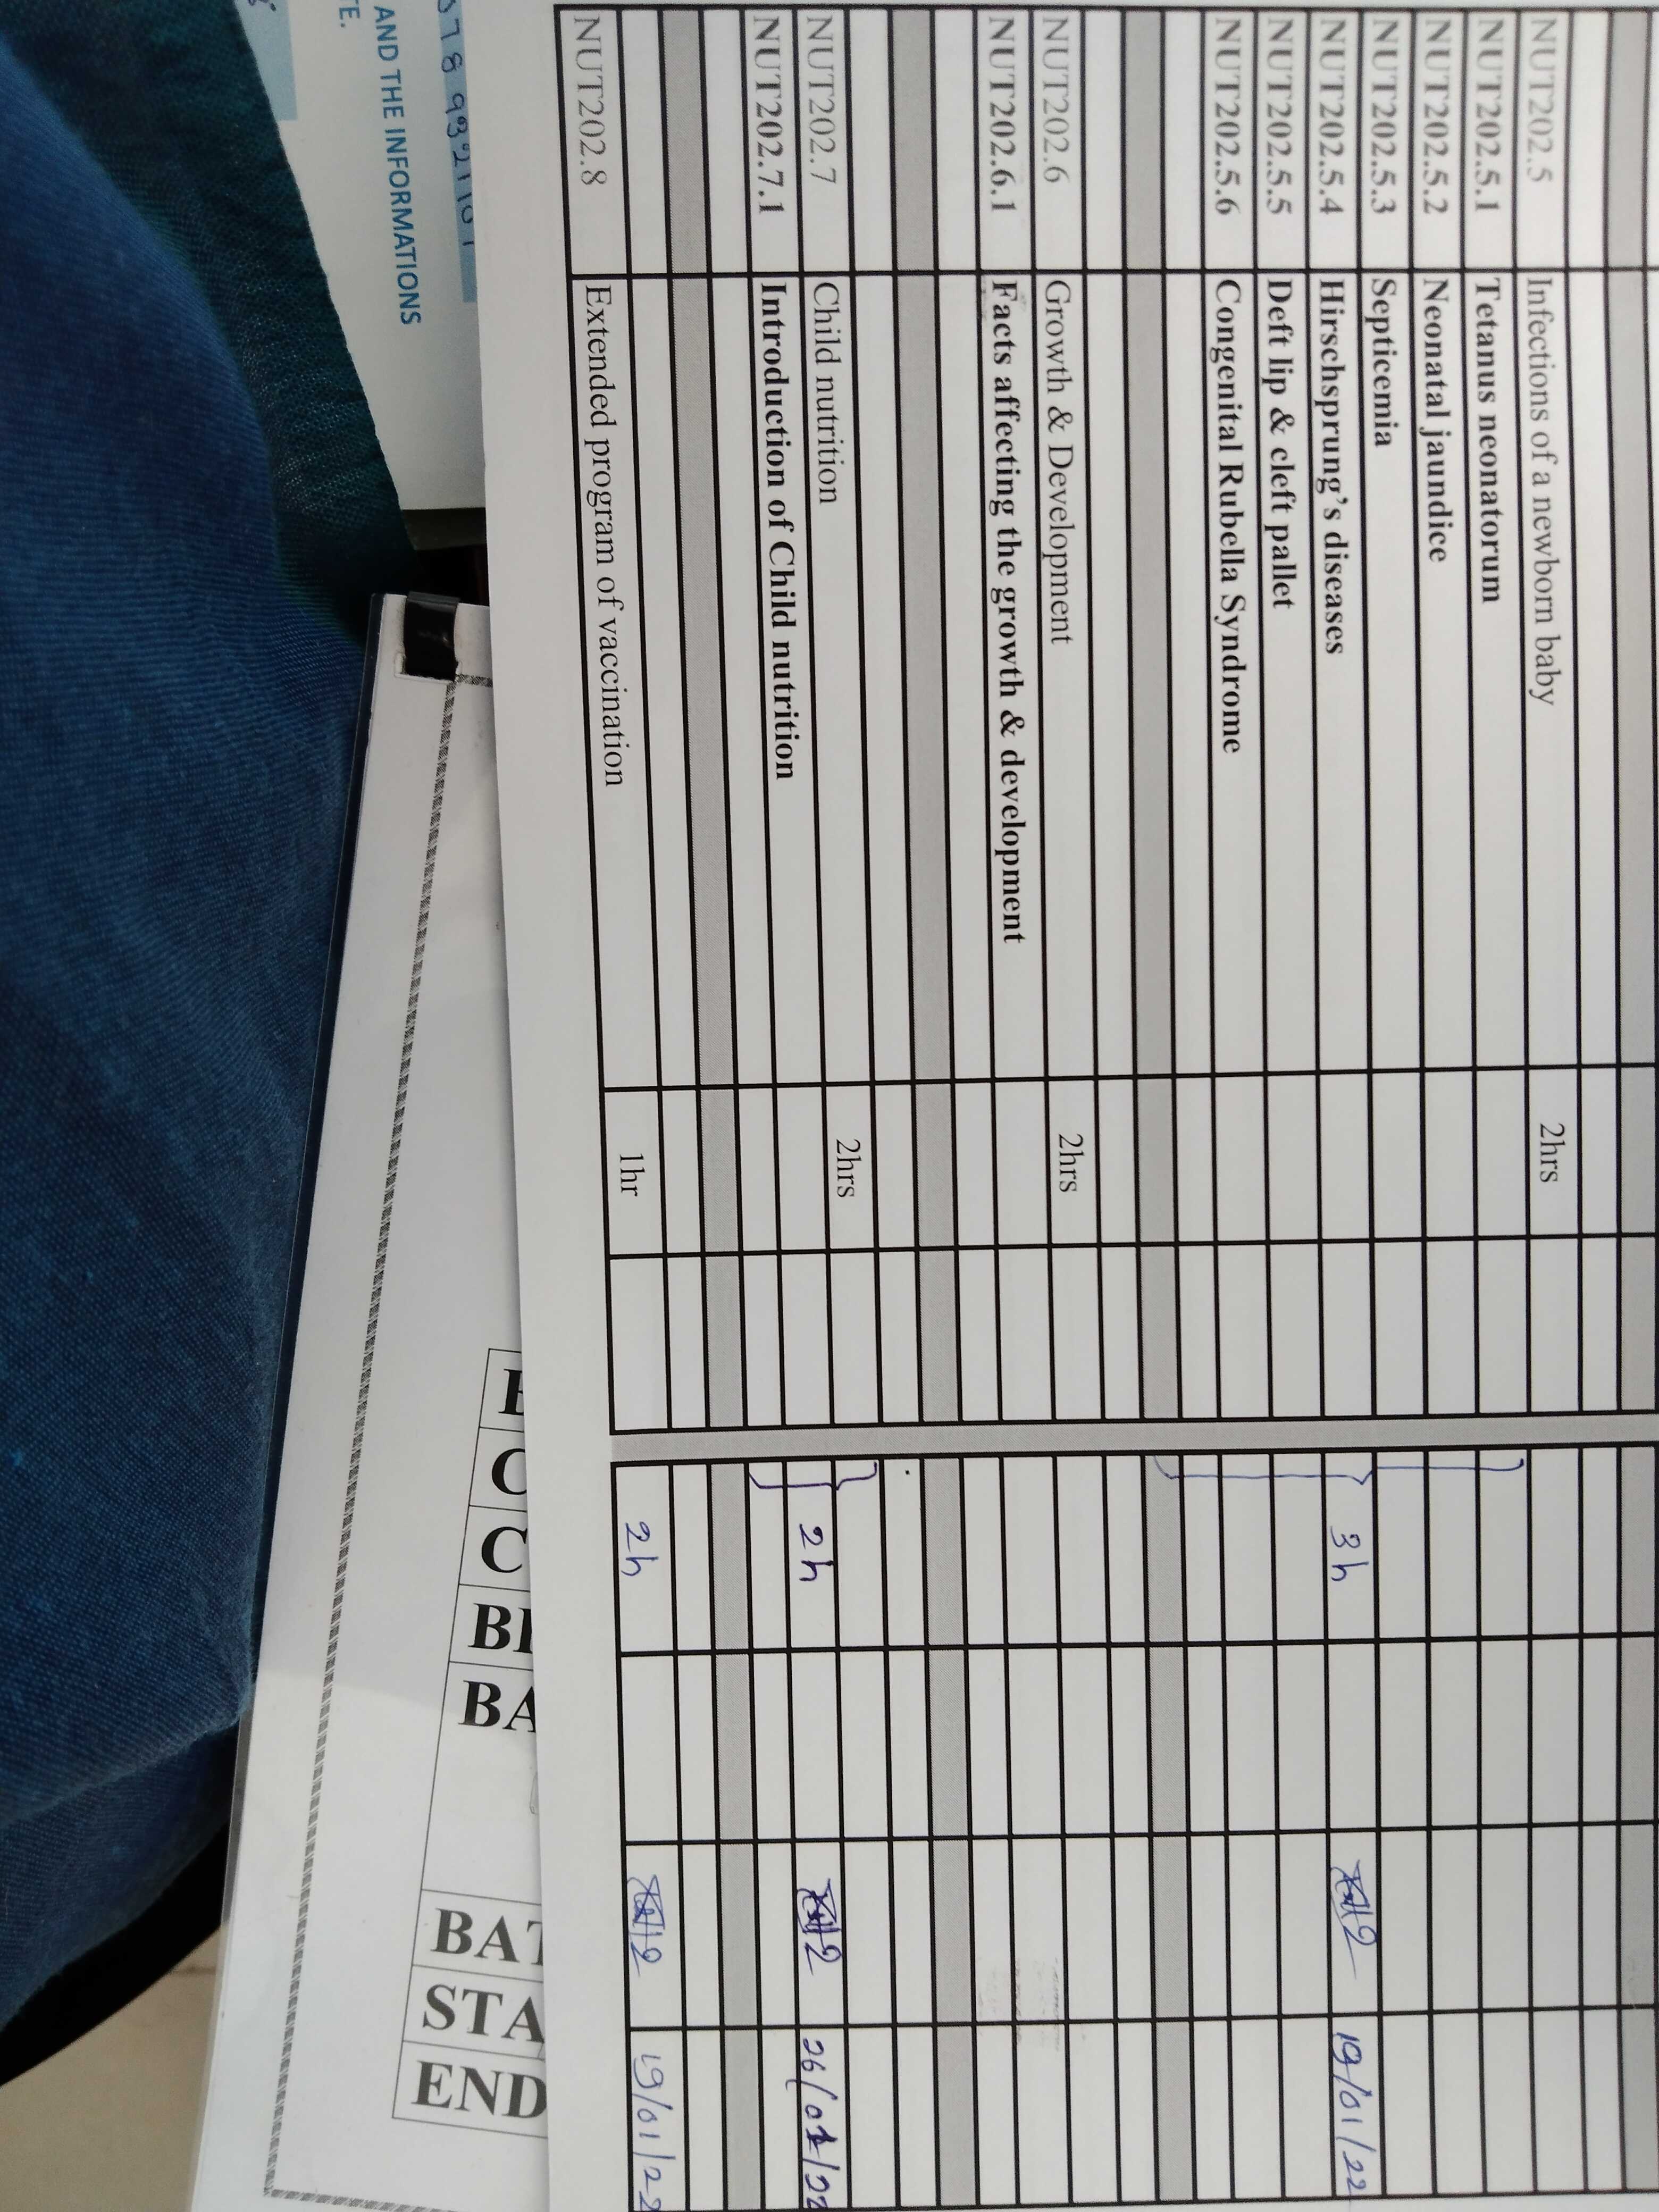 NUT202.5 Infections of a newborn baby 2hrs
NUT202.5.1 Tetanus neonatorum
NUT202.5.2 Neonatal jaundice
NUT202.5.3 Septicemia
NUT202.5.4 Hirschsprung's diseases 3h 19/01/22
NUT202.5.5 Deft lip & cleft pallet
NUT202.5.6 Congenital Rubella Syndrome
NUT202.6 Growth & Development 2hrs
NUT202.6.1 Facts affecting the growth & development
NUT202.7 Child nutrition 2hrs
2h 26/01/22
NUT202.7.1 Introduction of Child nutrition
NUT202.8 Extended program of vaccination 1hr 2h 19/01/22
AND THE INFORMATIONS
TE.
C
BA
BAT
STA
END